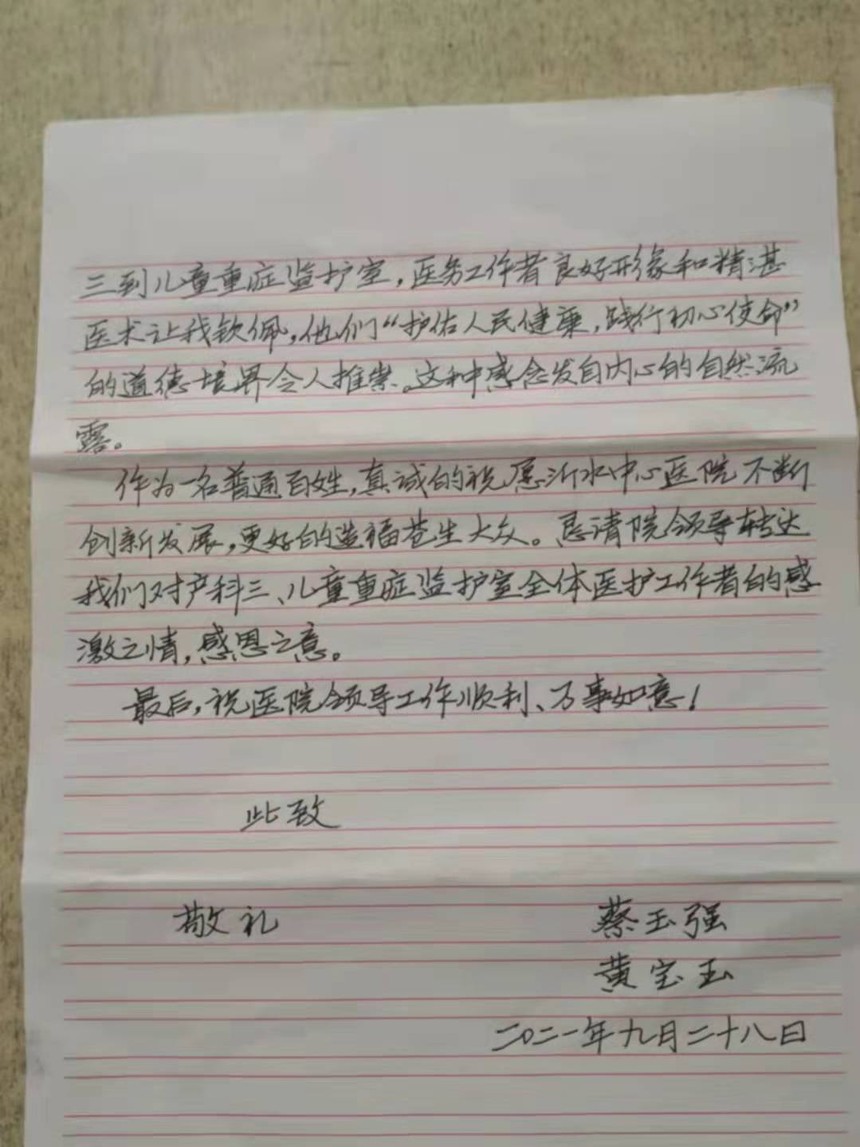 三到儿童重症监护室，医务工作者良好形象和精湛
医术让我钦佩，他们“护佑人民健康，践行初心使命”
的道德境界令人推崇。这种感念发自内心的自然流
露。
作为一名普通百姓，真诚的祝愿沂水中心医院不断
创新发展，更好的造福苍生大众。恳请院领导转达
我们对产科三、儿童重症监护室全体医护工作者的感
激之情，感恩之意。
最后，祝医院领导工作顺利、万事如意！
此致
敬礼
蔡玉强
黄宝玉
二〇二一年九月二十八日